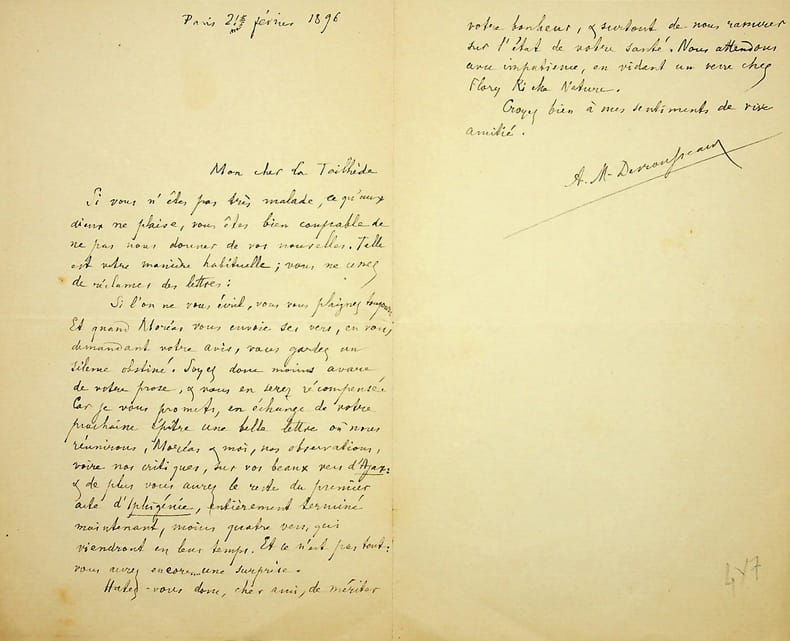 Paris 21 février 1896
Mon cher La Tailhède
Si vous n'êtes pas très malade, ce qu'aux
dieux ne plaise, vous êtes bien coupable de
ne pas nous donner de vos nouvelles. Telle
est votre manière habituelle ; vous ne cessez
de réclamer des lettres :
Si l'on ne vous écrit, vous vous plaignez toujours
Et quand Moréas vous envoie ses vers, en vous
demandant votre avis, vous gardez un
silence obstiné. Soyez donc moins avare
de votre prose, & vous en serez récompensé.
Car je vous promets, en échange de votre
prochaine épître une belle lettre où nous
réunirons, Moréas & moi, nos observations,
voire nos critiques, sur vos beaux vers d'Ajax :
& de plus vous aurez le reste du premier
acte d'Iphigénie, entièrement terminé
maintenant, moins quatre vers, qui
viendront en leur temps. Et ce n'est pas tout :
vous aurez encore... une surprise.
Hatez-vous donc, cher ami, de mériter
votre bonheur, & surtout de nous rassurer
sur l'état de votre santé. Nous attendons
avec impatience, en vidant un verre chez
Croyez bien à mes sentiments de vive
amitié.
A. M. Desrousseaux
447